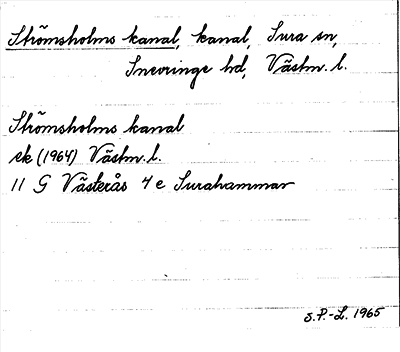 Strömsholms kanal, kanal, Sura sn,
Snevringe hd, Västm. l.
Strömsholms kanal
ek (1964) Västm. l.
11 G Västerås 4 e Surahammar
S.P.-L. 1965